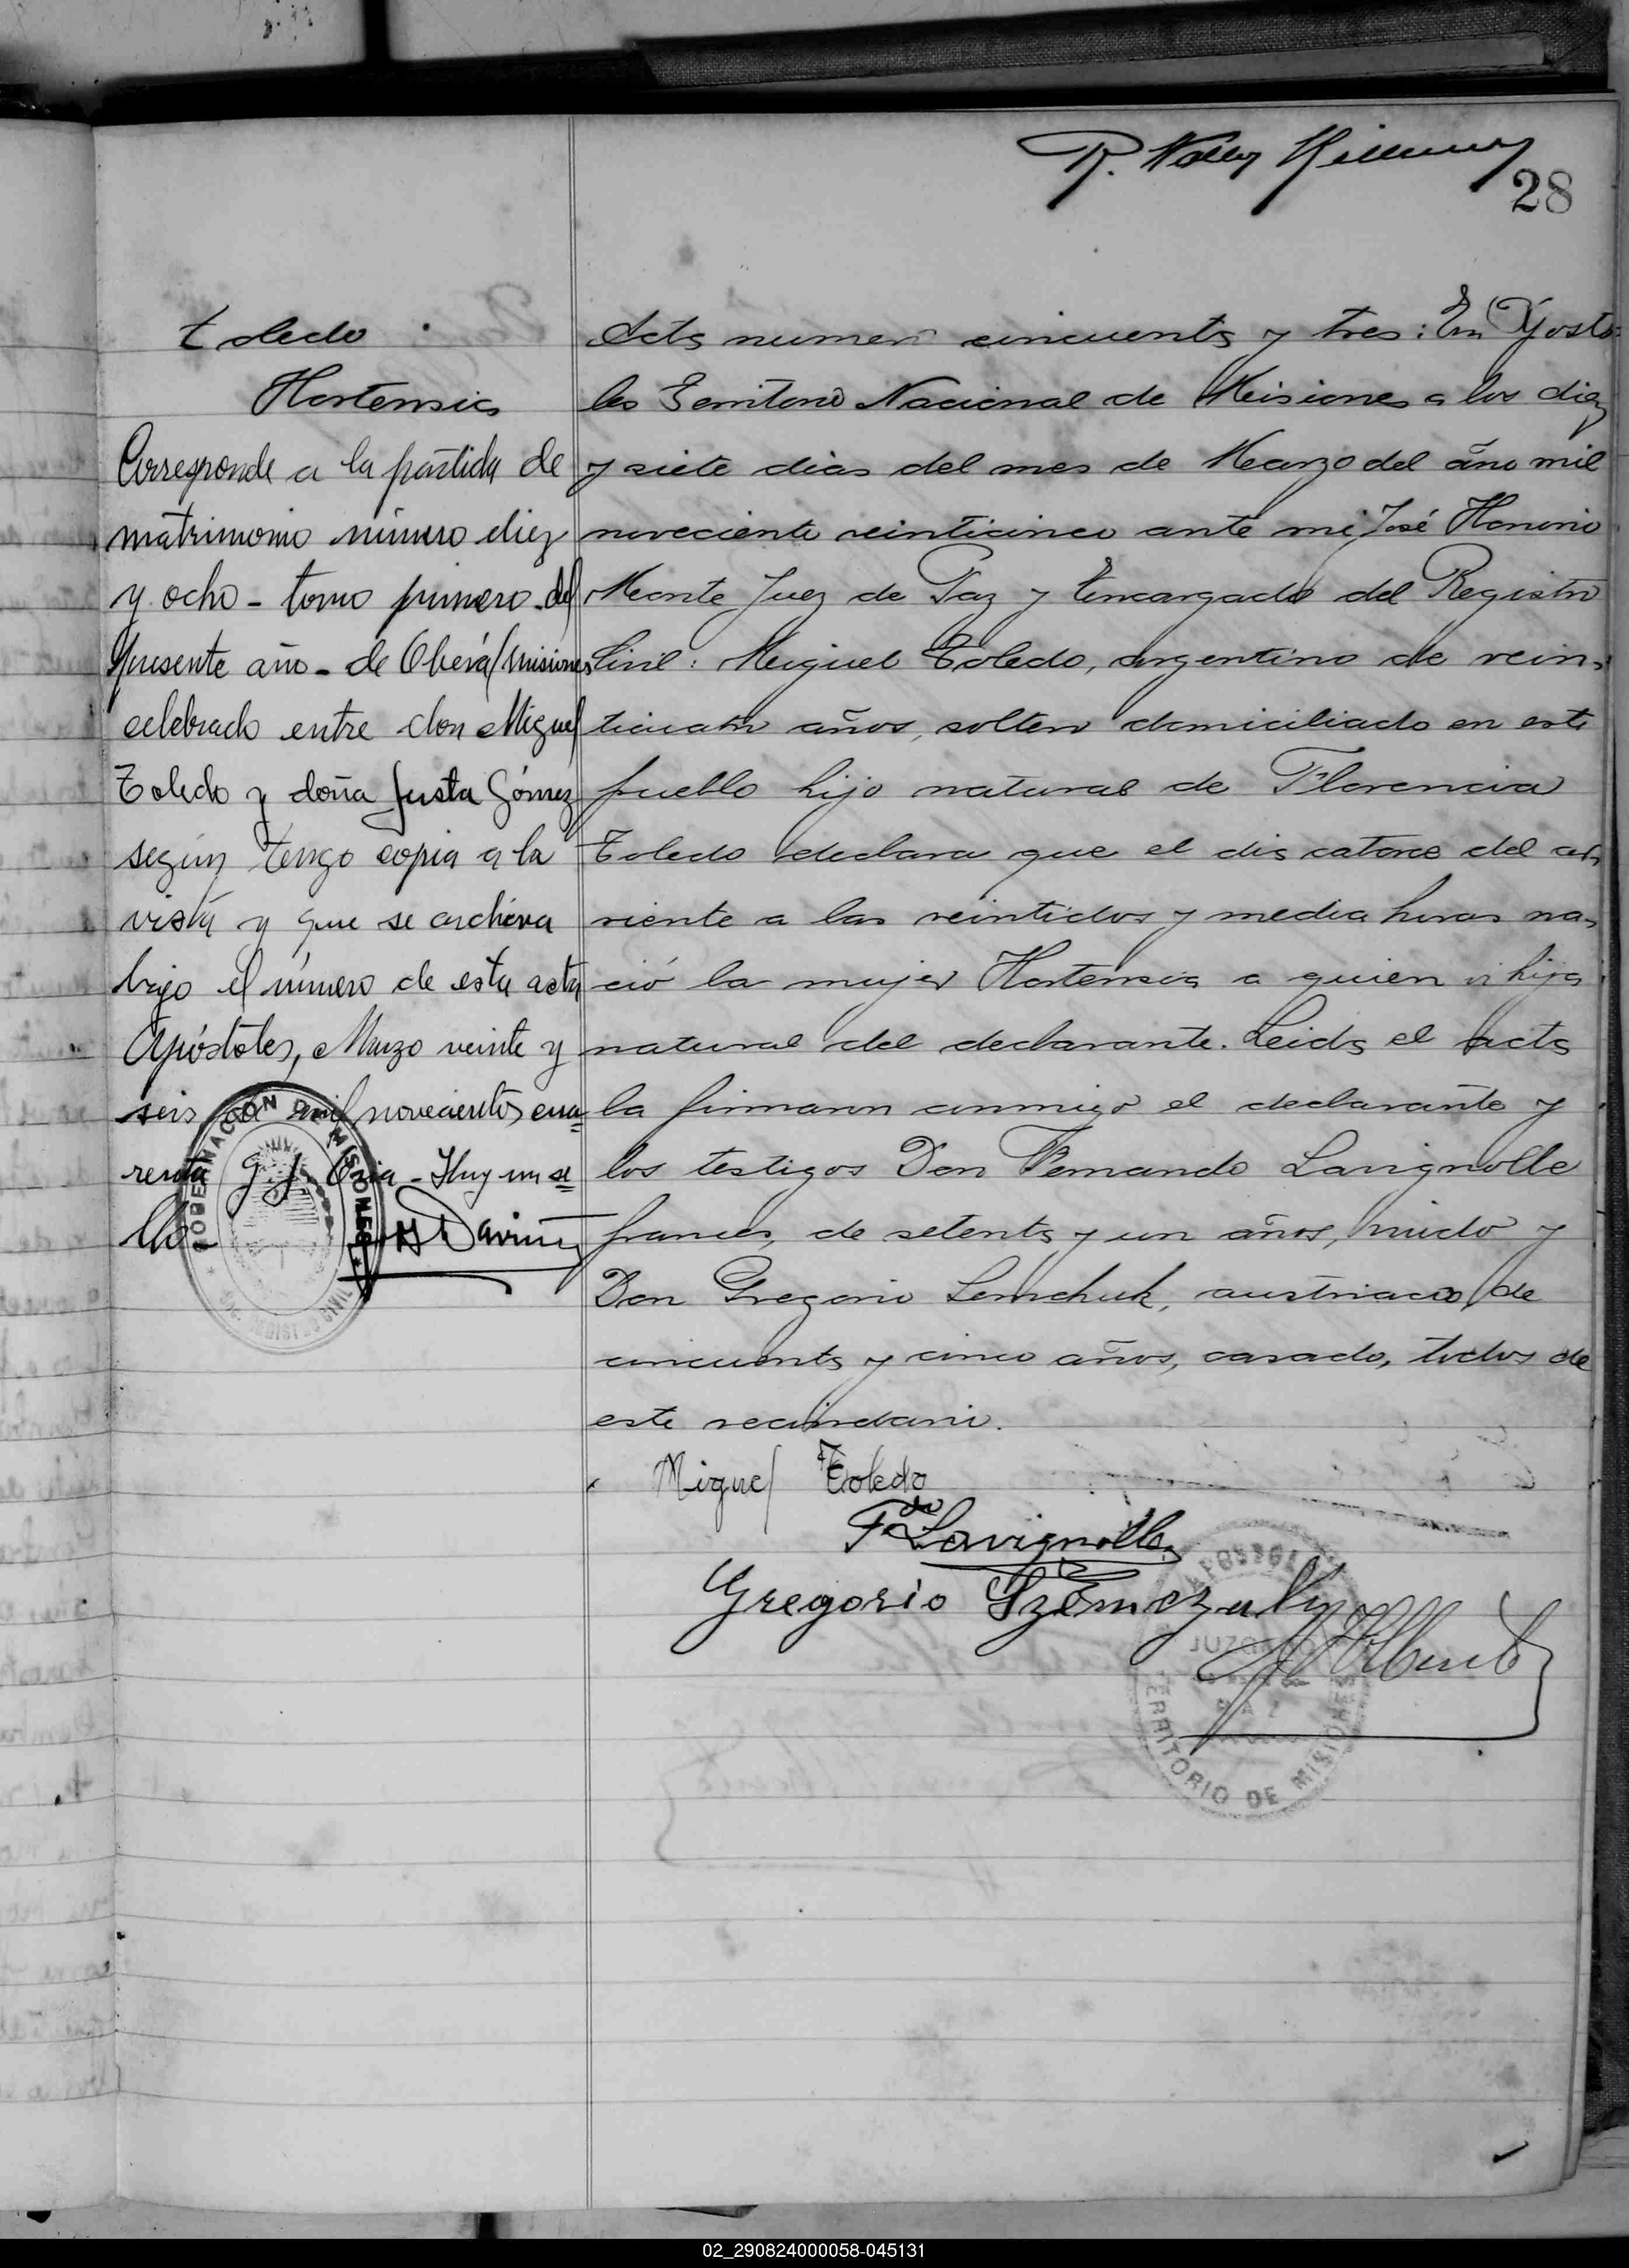 28
Toledo
Hortensia
Corresponde a la partida de
matrimonio número diez
y ocho - tomo primero - del
presente año - de Oberá (Misiones
celebrado entre don Miguel
Toledo y doña Justa Gómez
según tengo copia a la
vista y que se archiva
bajo el número de esta acta
Apóstoles, Marzo veinte y
seis de mil novecientos cua=
renta G. J. - Hay un se=
llo -
GOBERNACIÓN DE MISIONES
REGISTRO CIVIL
Acta numero cincuenta y tres: En Aposto-
les Territorio Nacional de Misiones a los diez
y siete dias del mes de Marzo del año mil
noveciento veinticinco ante mi José Honorio
Juez de Paz y Encargado del Registro
Civil: Miguel Toledo, argentino de vein-
ticuatro años, soltero domiciliado en este
pueblo hijo natural de Florencia
Toledo declara que el dia catorce del co-
rriente a las veintidos y media horas na-
ció la mujer Hortensia a quien vi hija
natural del declarante. Leida el acta
la firmaron conmigo el declarante y
los testigos Don Fernando Lavignolle
frances, de setenta y un años, viudo y
Don Gregorio Semchuk, austriaco, de
cincuenta y cinco años, casado, todos de
este vecindario.
Miguel Toledo
Fdo Lavignolle
Gregorio
APOSTOLES
JUZGADO
PAZ
TERRITORIO DE MISIONES
02_290824000058-045131